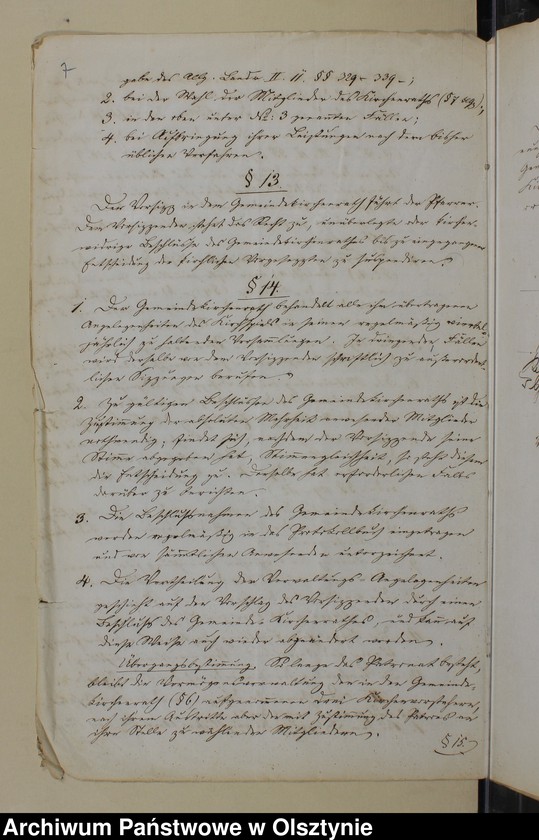 7
gabe des Allg. Landr. II. 11. §§ 329 - 339 -;
2. bei der Wahl der Mitglieder des Kirchenraths (§ 7 );
3. in den oben unter 3 genannten Fällen;
4. bei Aufbringung ihrer Leistungen nach dem bisher
üblichen Verfahren.
§ 13.
Den Vorsitz in dem Gemeindekirchenrath führt der Pfarrer.
Dem Vorsitzenden steht das Recht zu, oder kirchen-
widrige Beschlüsse des Gemeindekirchenrathes bis zu eingegangener
Entscheidung der kirchlichen Vorgesetzten zu suspendiren.
§ 14.
1. Der Gemeindekirchenrath behandelt alle ihm übertragenen
Angelegenheiten des Kirchspiels in seinen regelmäßig viertel-
jährlich zu haltenden Versammlungen. In dringenden Fällen
wird derselbe von dem Vorsitzenden schriftlich zu außerordent-
lichen Sitzungen berufen.
2. Zu gültigen Beschlüssen des Gemeindekirchenraths ist die
Zustimmung der absoluten Mehrheit anwesender Mitglieder
nothwendig; findet sich, nachdem der Vorsitzende seine
Stimme abgegeben hat, Stimmengleichheit, so steht diesem
die Entscheidung zu. Derselbe hat erforderlichen Falls
darüber zu berichten.
3. Die Beschlußnahmen des Gemeindekirchenraths
werden regelmäßig in das Protokollbuch eingetragen
und von sämmtlichen Anwesenden unterzeichnet.
4. Die Vertheilung der Verwaltungs-Angelegenheiten
geschieht auf den Vorschlag des Vorsitzenden durch einen
Beschluß des Gemeinde-Kirchenrathes, und kann auf
diese Weise auch wieder abgeändert werden.
Übergangsbestimmung. So lange das Patronat besteht,
bleibt die Vermögensverwaltung den in den Gemeinde-
kirchenrath (§ 6) aufgenommenen drei Kirchenvorstehern,
nach ihrem Austritte aber den mit Zustimmung des Patrons an
ihre Stelle zu wählenden Mitgliedern.
§ 15.
Archiwum Państwowe w Olsztynie